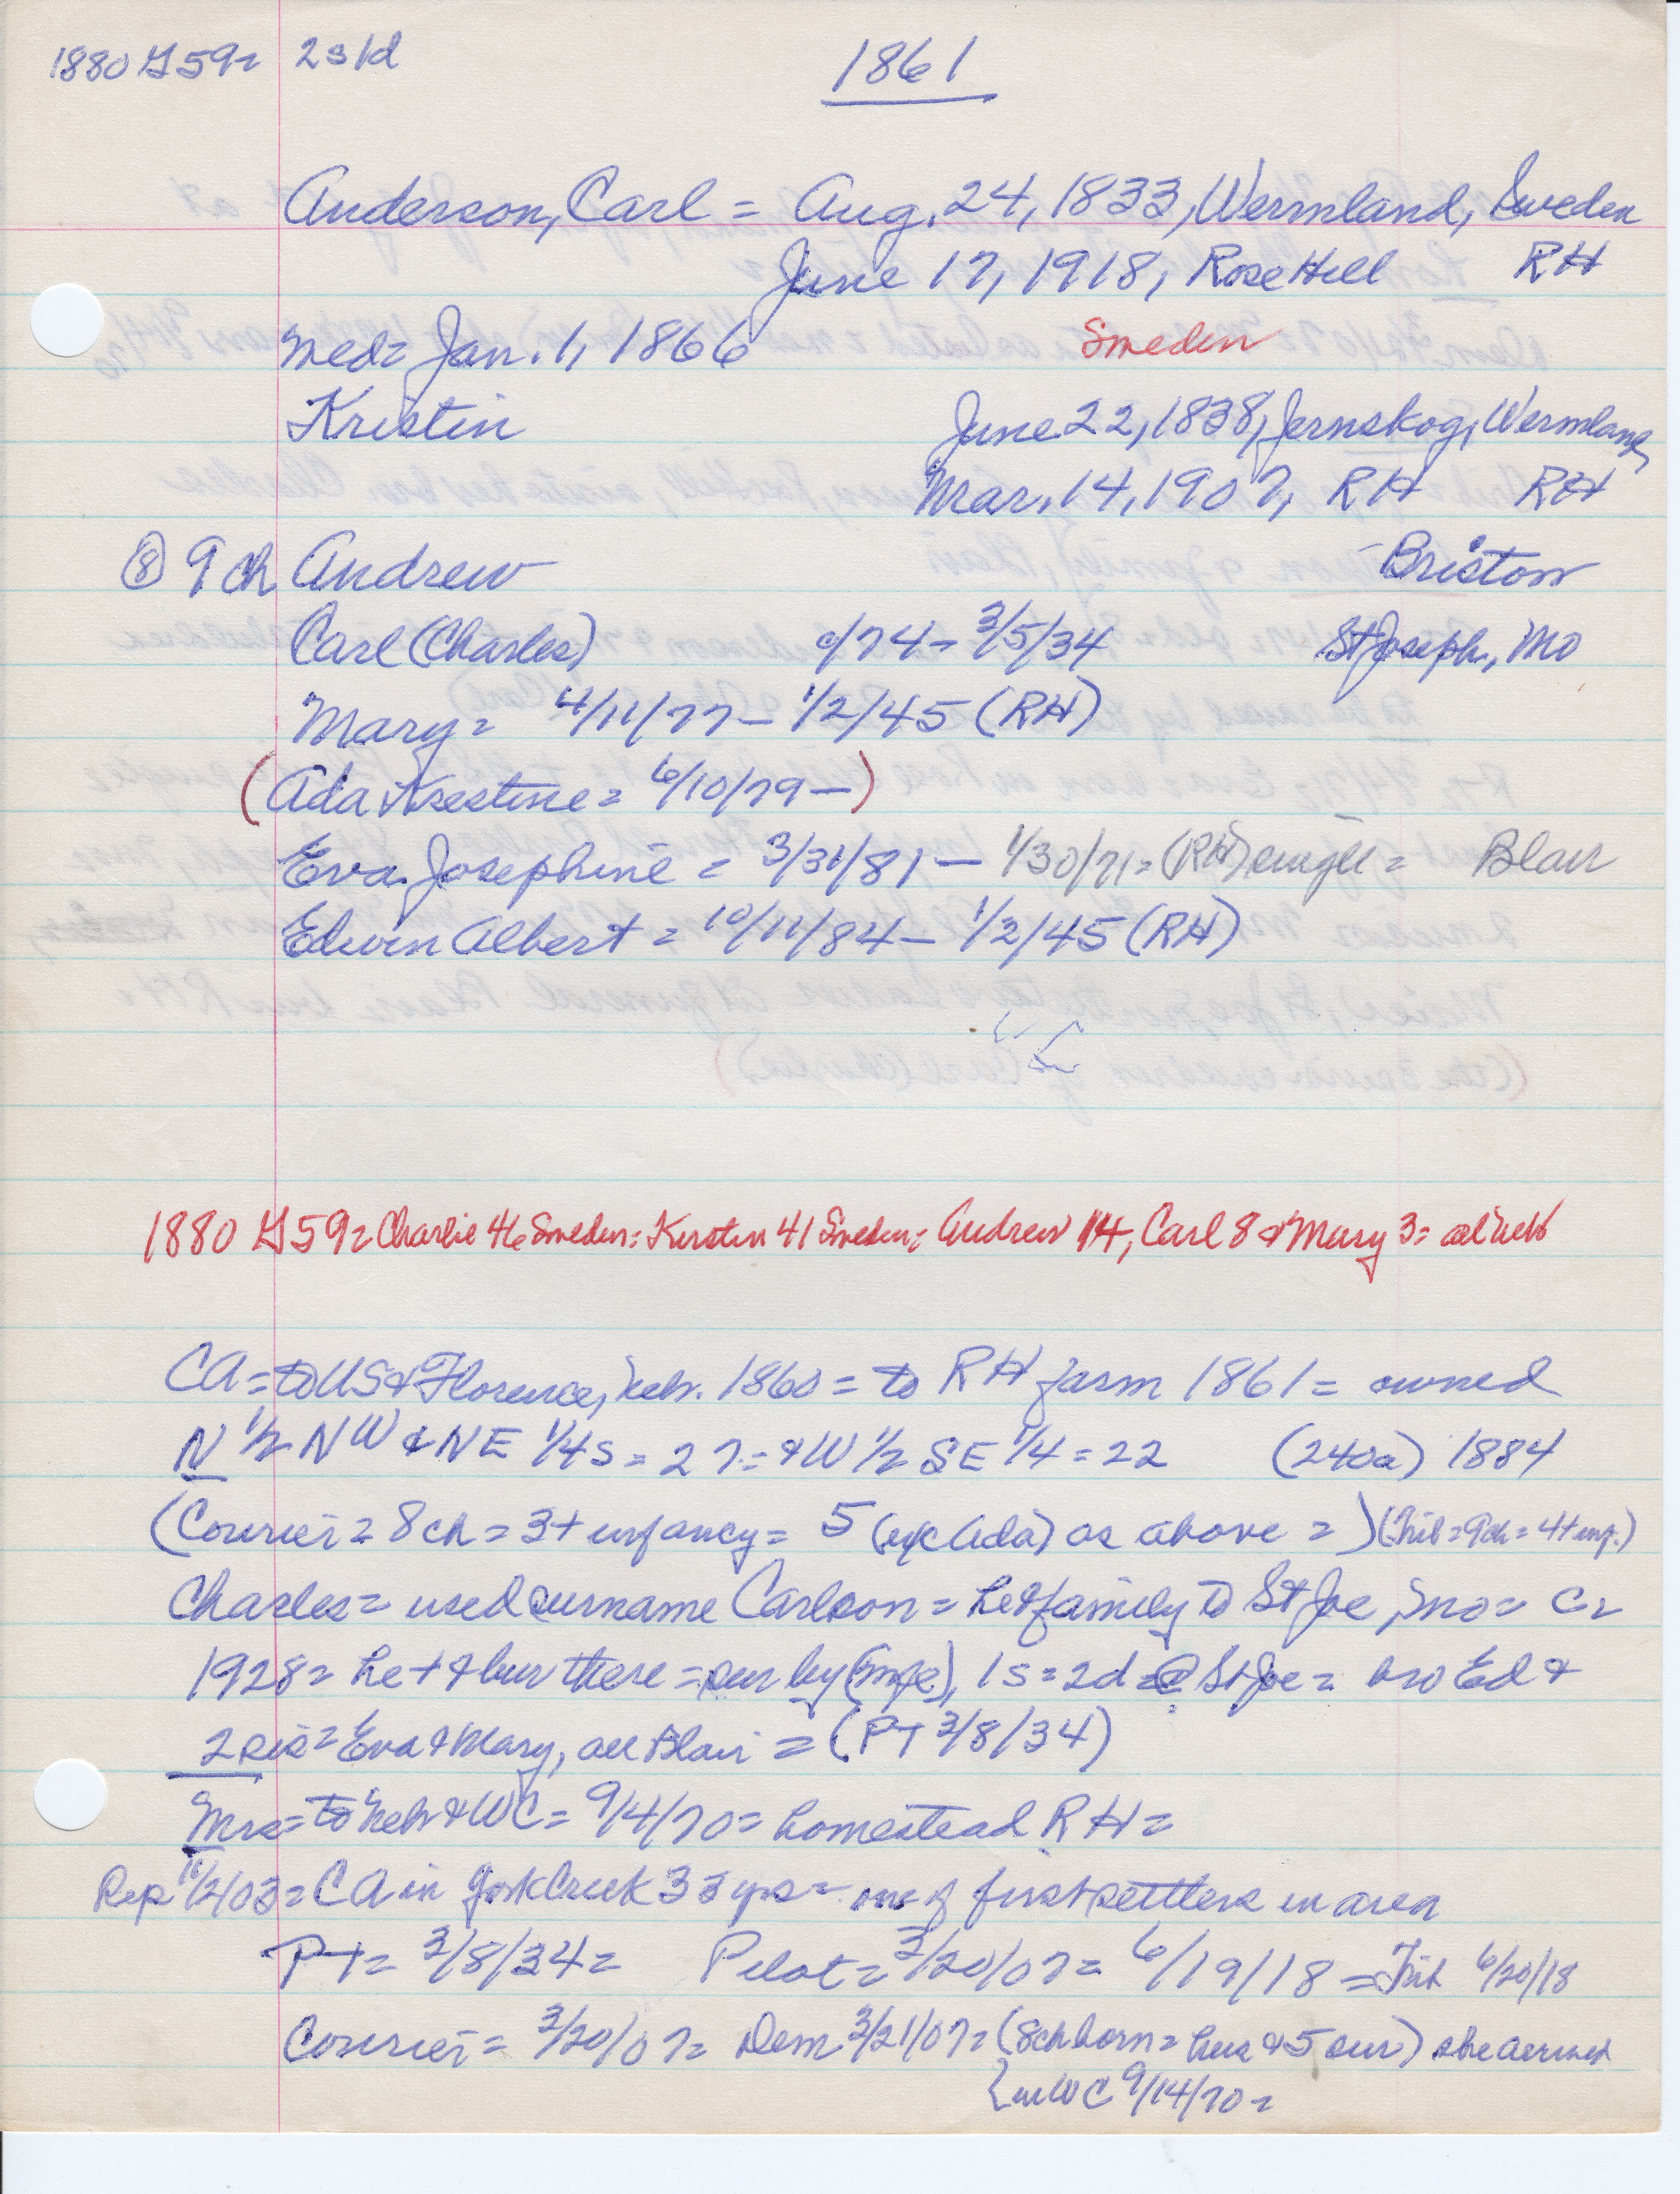 1880 G59= 2s1d
1861
Anderson, Carl = Aug. 24, 1833, Wermland, Sweden
June 17, 1918, Rose Hill RH
Med= Jan. 1, 1866 Sweden
Kristin June 22, 1838, Jernskog, Wermland
Mar. 14, 1907, RH RH
(8) 9 ch Andrew - Briston
Carl (Charles) /74 - 3/5/34 St Joseph, Mo
Mary = 4/11/77 - 1/2/45 (RH)
(Ada = 6/10/79 - )
Eva Josephine = 3/31/81 - 1/30/71 = (RH) single = Blair
Edwin Albert = 10/11/84 - 1/2/45 (RH)
1880 G59= Charlie 46 Sweden = Kersten 41 Sweden = Andrew 14, Carl 8 & Mary 3 = all Neb
CA = to US & Florence, Neb. 1860 = to RH farm 1861 = owned
N 1/2 NW & NE 1/4s = 27 = & W 1/2 SE 1/4 = 22 (240a) 1884
(Courier = 8 ch = 3 + infancy = 5 (exc Ada) as above = ) (Trib = 9ch = 4 + inf.)
Charles = used surname Carlson = he & family to St Joe, Mo = C=
1928 = he + & bur there = sur by (Mrs), 1s = 2d = @ St Joe = bro Ed &
2 sis = Eva & Mary, all Blair = (PT 3/8/34)
Mrs = to Neb & WC = 9/4/70 = homestead RH =
Rep 11/2/03 = CA in York Creek 33 yrs = one of first settlers in area
PT = 3/8/34 = Pilot = 3/20/07 = 6/19/18 = Trib 6/20/18
Courier = 3/20/07 = Dem 3/21/07 = (8ch born = hus & 5 sur) she arrived
{in WC 9/14/70 =